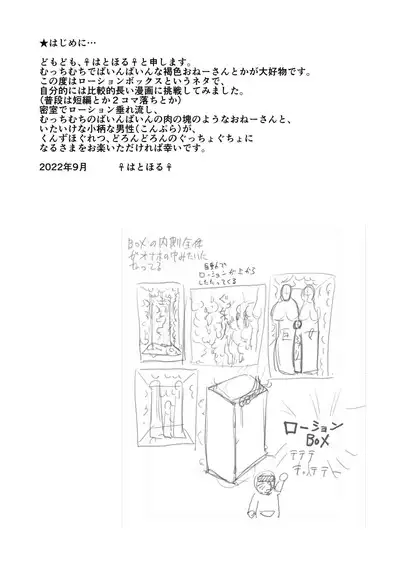 ★はじめに…
どもども、♀はとほる♀と申します。
むっちむちでばいんばいんな褐色おねーさんとかが大好物です。
この度はローションボックスというネタで、
自分的には比較的長い漫画に挑戦してみました。
(普段は短編とか２コマ落ちとか)
密室でローション垂れ流し、
むっちむちのばいんばいんの肉の塊のようなおねーさんと、
いたいけな小柄な男性(こんぶら)が、
くんずほぐれつ、どろんどろんのぐっちょぐちょに
なるさまをお楽いただければ幸いです。
2022年9月　　　♀はとほる♀
BOXの内側全体
がオナホの中みたいに
なってる
自動で
ローションが上から
したたってくる
巨女
ローション
BOX
テテテ